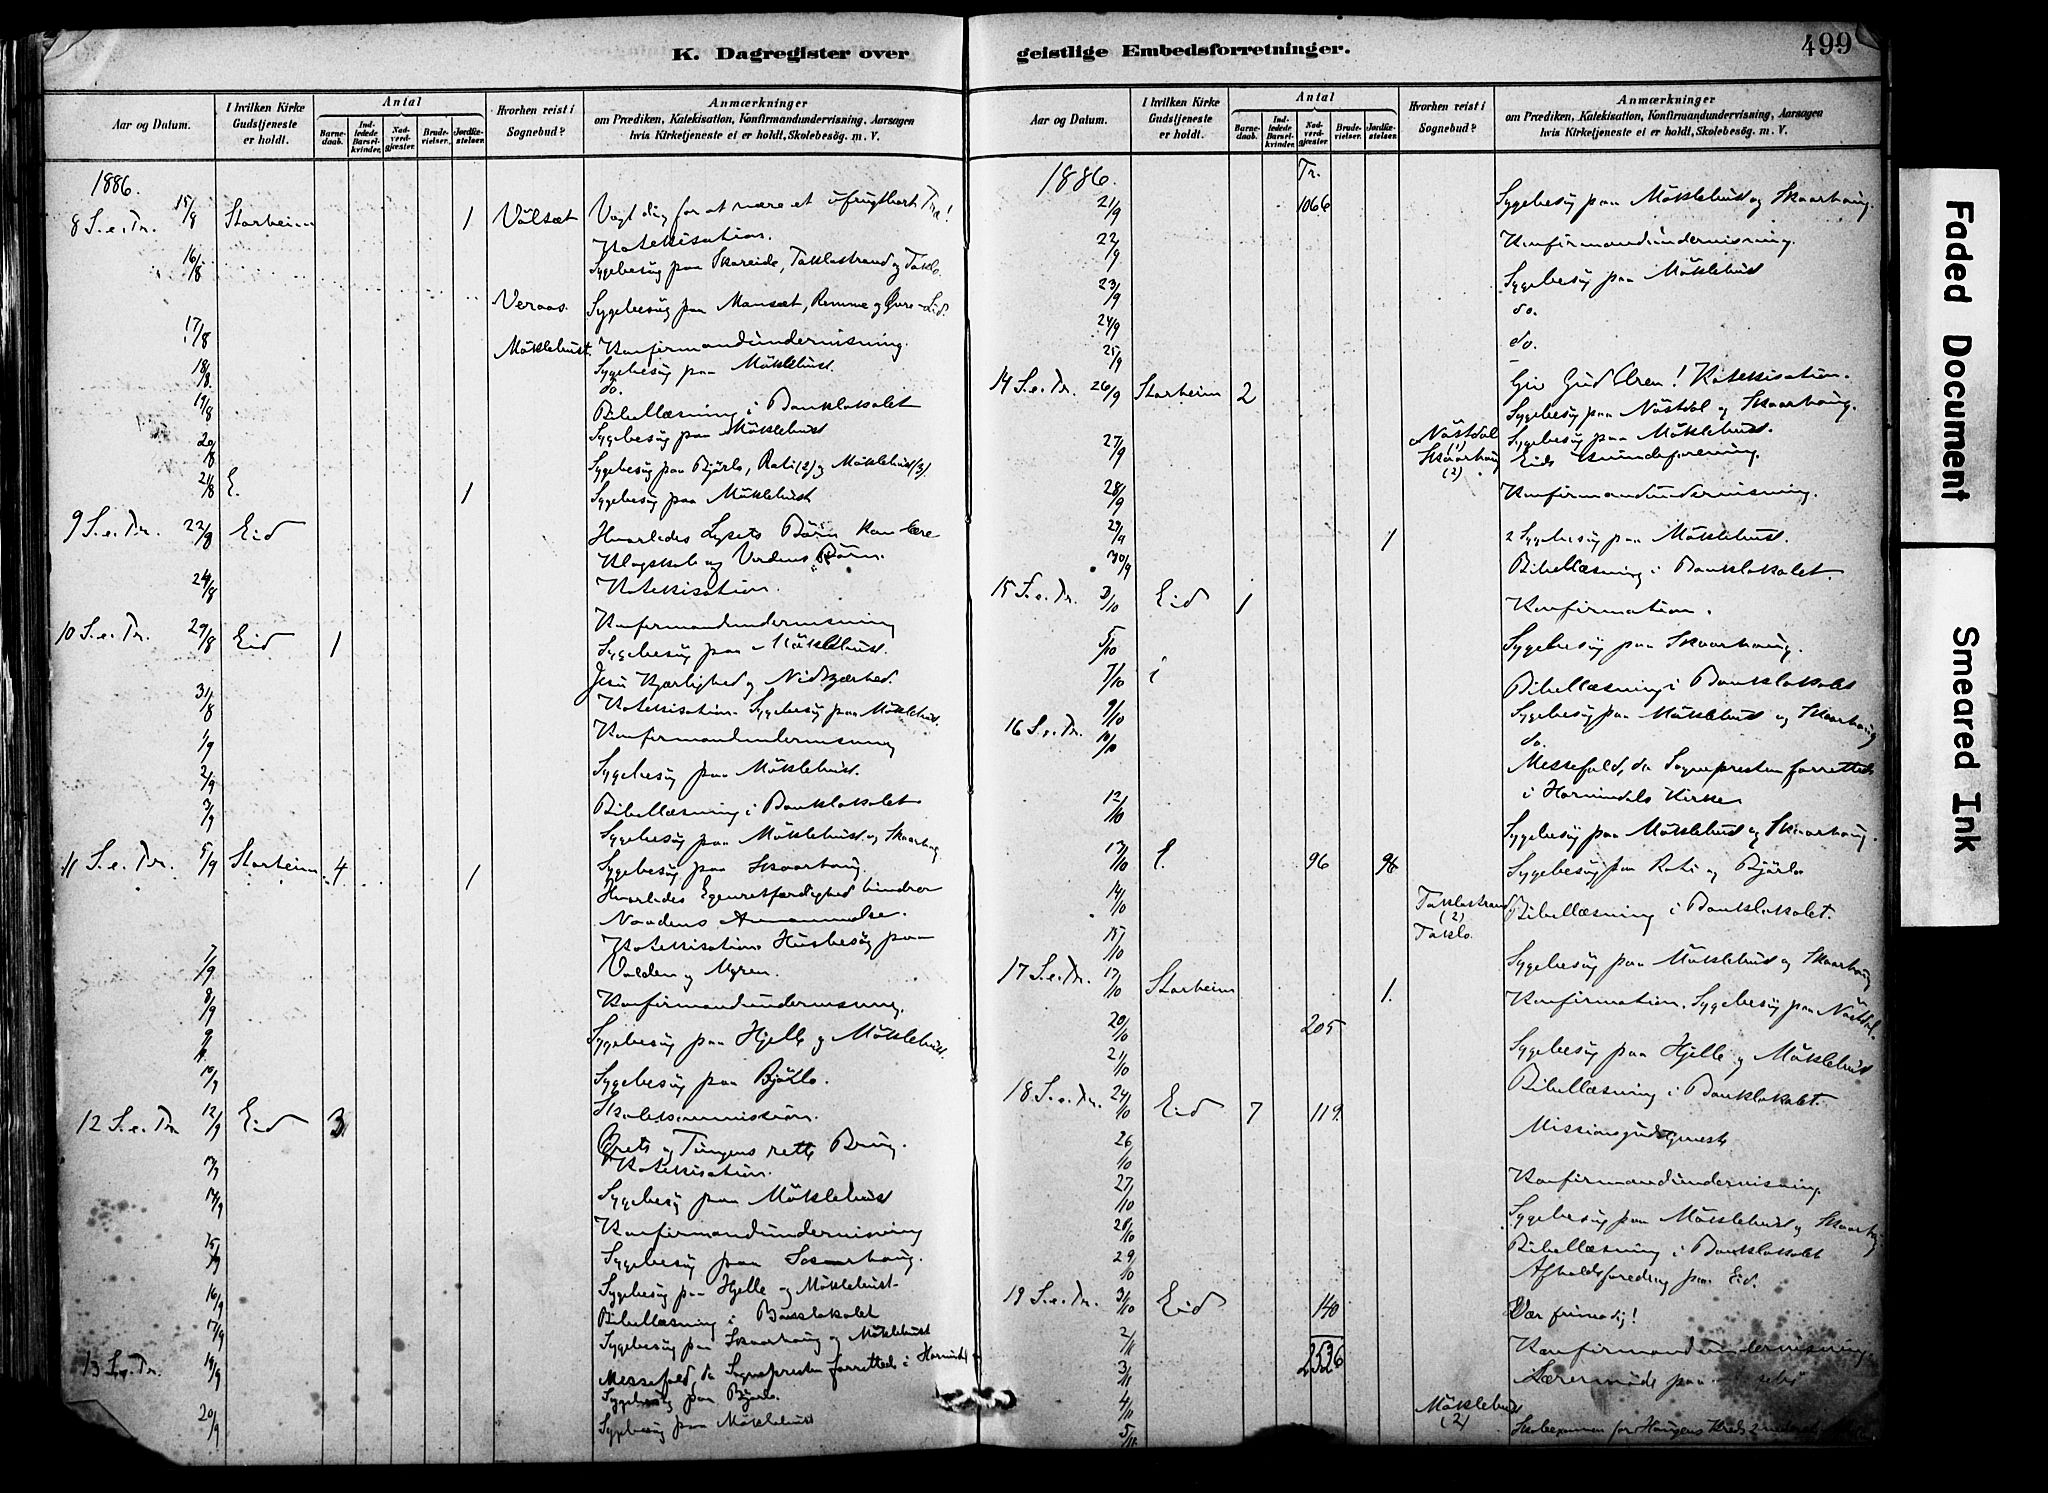 K. Dagregister over
Aar og Datum.
I hvilken Kirke Gudstjeneste er holdt.
Antal
Barnedaab.
Indledede Barselkvinder.
Nadverdgjæster.
Brudevielser.
Jordfæstelser.
Hvorhen reist i Sognebud?
Anmærkninger
om Prædiken, Katekisation, Konfirmandundervisning, Aarsagen
hvis Kirketjeneste ei er holdt, Skolebesøg. m. V.
1886.
8 S. e. Tr. 15/8 Starheim 1 Völsæt Vogt dig for at være et ufrugtbart Træ!
Katekisation.
16/8 Sygebesög paa Skareide, Taklostrand og Taklo.
Veraas. Sygebesög paa Mansæt, Remme og Övre-Eid.
17/8 Möklebust. Konfirmandundervisning.
18/8 Sygebesög paa Möklebust.
do.
19/8 Bibellæsning i Banklokalet
20/8 Sygebesög paa Möklebust
Sygebesög paa Bjørlo, Rati (2) og Möklebust (3).
21/8 E. 1 Sygebesög paa Möklebust
9 S. e. Tr. 22/8 Eid Hvorledes Lysets Börn kan lære
Klogskab og Verdens Börn.
24/8 Katekisation.
Konfirmandundervisning
10 S. e. Tr. 29/8 Eid 1 Sygebesög paa Möklebust.
Jesu Kjærlighed og Nidkjærhed.
31/8 Katekisation. Sygebesög paa Möklebust.
1/9 Konfirmandundervisning
2/9 Sygebesög paa Möklebust.
3/9 Bibellæsning i Banklokalet
Sygebesög paa Möklebust og Skaarhaug
11 S. e. Tr. 5/9 Starheim 4 1 Sygebesög paa Skaarhaug.
Hvorledes Egenretfærdighed hindrer
Naadens Annammelse.
Katekisation. Husbesög paa
7/9 Valden og Myren.
8/9 Konfirmandundervisning.
9/9 Sygebesög paa Hjelle og Möklebust.
10/9 Sygebesög paa Bjørlo.
Skolekommission.
12 S. e. Tr 12/9 Eid 3 Örets og Tungens rette Brug.
13/9 Katekisation.
14/9 Sygebesög paa Möklebust
Konfirmandundervisning
15/9 Sygebesög paa Skaarhaug.
16/9 Sygebesög paa Hjelle og Möklebust.
Bibellæsning i Banklokalet
17/9 Sygebesög paa Skaarhaug og Möklebust
13 S. e. Tr. 19/9 Messefald, da Sognepresten forrettede i Hornindal
Sygebesög paa Bjørlo.
20/9 Sygebesög paa Möklebust
geistlige Embedsforretninger.
499
Aar og Datum.
I hvilken Kirke Gudstjeneste er holdt.
Antal
Barnedaab.
Indledede Barselkvinder.
Nadverdgjæster.
Brudevielser.
Jordfæstelser.
Hvorhen reist i Sognebud?
Anmærkninger
om Prædiken, Katekisation, Konfirmandundervisning, Aarsagen
hvis Kirketjeneste ei er holdt, Skolebesøg. m. V.
1886. Tr.
21/9 1066 Sygebesög paa Möklebust og Skaarhaug.
22/9 Konfirmandundervisning.
23/9 Sygebesög paa Möklebust
24/9 do.
25/9 do.
14 S. e. Tr. 26/9 Starheim 2 Giv Gud Æren! Katekisation.
Sygebesög paa Nöstdal og Skaarhaug.
27/9 Nöstdal (1) Sygebesög paa Möklebust.
Skaarhaug (2) Eids Kvindeforening.
28/9 Konfirmandundervisning.
29/9 1 2 Sygebesög paa Möklebust.
30/9 Bibellæsning i Banklokalet.
15 S. e. Tr. 3/10 Eid 1 Konfirmation.
5/10 Sygebesög paa Skaarhaug.
7/10 Bibellæsning i Banklokalet
9/10 Sygebesög paa Möklebust og Skaarhaug
16 S. e. Tr. 10/10 do.
Messefald, da Sognepresten forrettede
i Hornindals Kirke
12/10 Sygebesög paa Möklebust og Skaarhaug.
13/10 E. 96 96 Sygebesög paa Rati og Bjørlo
14/10 Taklostrand (2) Bibellæsning i Banklokalet.
15/10 Taklo.
Sygebesög paa Möklebust og Skaarhaug
17 S. e. Tr. 17/10 Starheim 1. Konfirmation. Sygebesög paa Nöstdal.
20/10 205 Sygebesög paa Hjelle og Möklebust
21/10 Bibellæsning i Banklokalet.
18 S. e. Tr. 24/10 Eid 7 119. Missionsgudstjeneste
26/10 Konfirmandundervisning.
27/10 Sygebesög paa Möklebust og Skaarhaug
28/10 Bibellæsning i Banklokalet
29/10 Afholdsforedrag paa Eid.
19 S. e. Tr. 31/10 Eid 140 Vær frimodig!
2/11 Konfirmandundervisning.
2536
3/11 Lærermöde paa
4/11 Möklebust (2)
5/11 Skoleexamen for Haugens Kreds
Faded Document
Smeared Ink